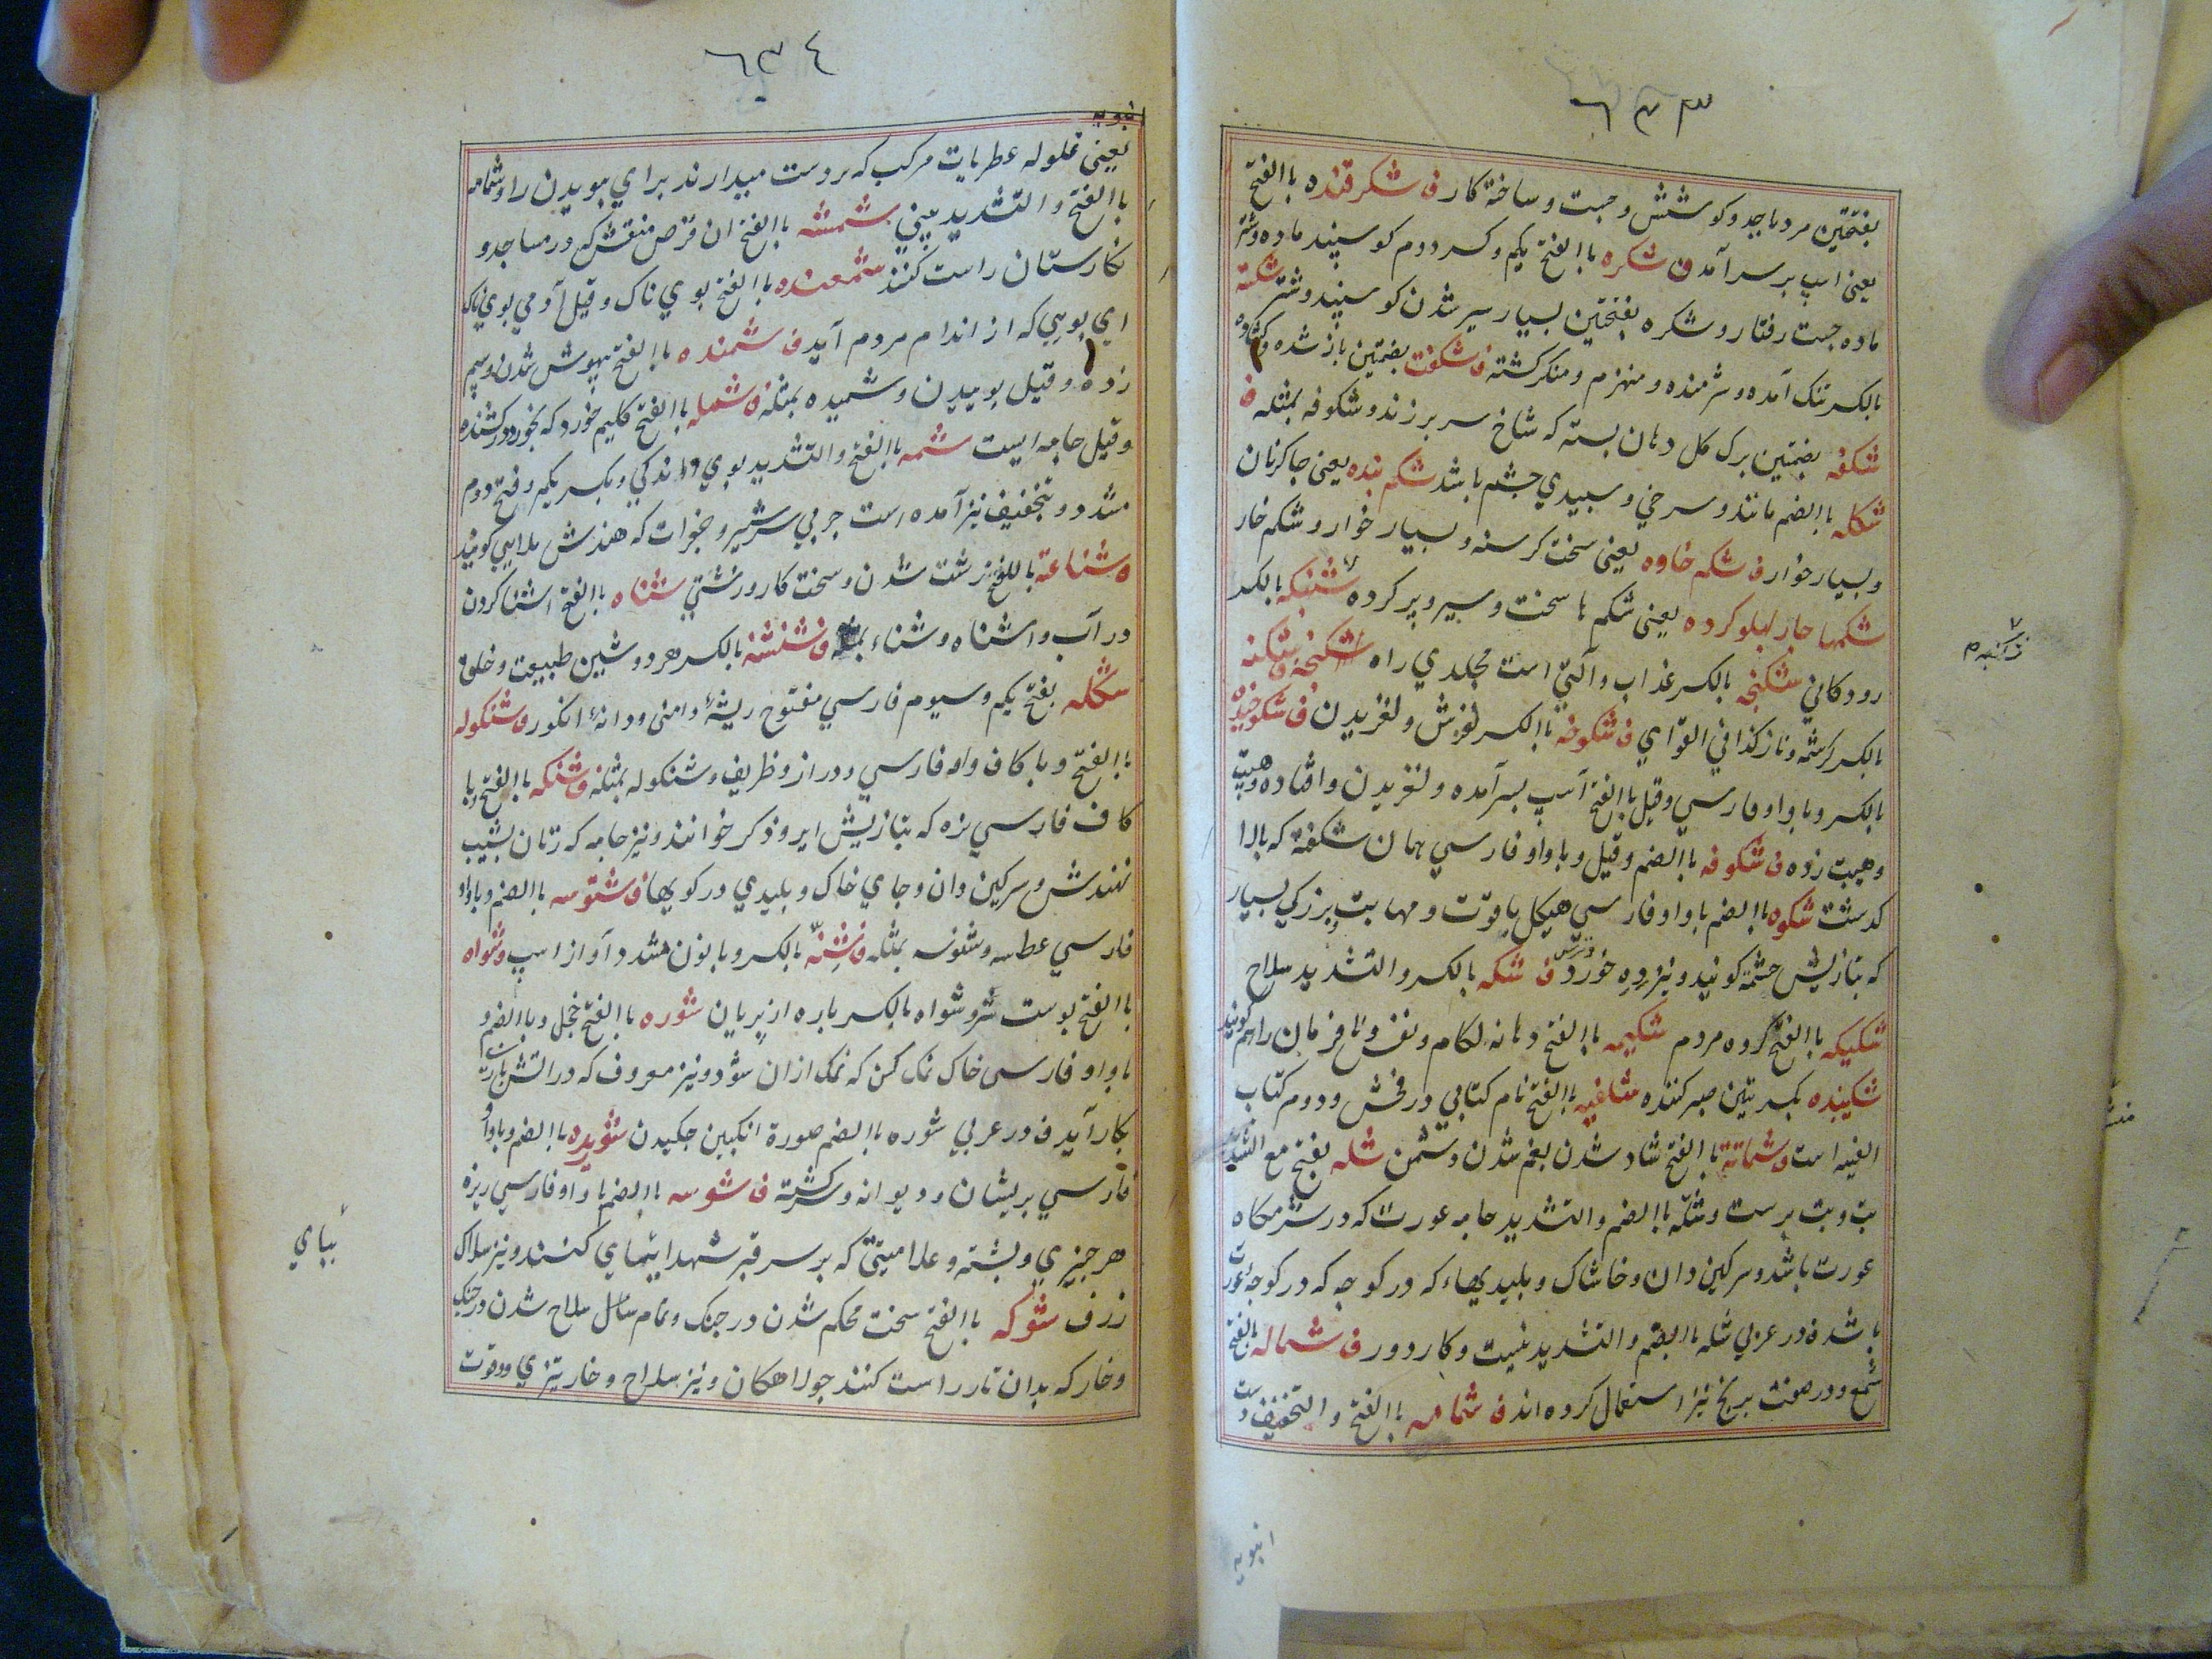 ٦٣٣
بفتحتین مرد ماجد و کوشش و جست و ساخته کار ف شکرقنده باالفتح
یعنی اسپ برسر آمدن شکره باالفتح یکم و کسر دوم کوسپند ماده و شتر
ماده جست رفتار و شکره بفتحتین بسیار سیر شدن کوسپند و شتر شکسته
بالکسر تنک آمده و شرمنده و منهزم و منکر کشته ف شکفت بضمتین باز شده و کشاده
شکفه بضمتین برک کل دهان بسته که شاخ سر برزند و شکوفه بمثله ف
شکله باالضم مانند و سرخی و سپیدی چشم باشد شکم بنده یعنی چاکرنان
و بسیار خوار ف شکم خاوه یعنی سخت کرسنه و بسیار خوار و شکم خار
شکمها چار پهلو کرده یعنی شکم ها سخت و سیر و پر کرده شنکه بالکسر
رودکانی شکنجه بالکسر عذاب و آلتی است مجلدی را ه شکنجه ف شکنه
بالکسر کرشمه و ناز کذا فی القوای ف شکوخه باالکسر لغزش و لغزیدن ف شکوخیده
بالکسر و باواو فارسی و قیل باالفتح آسپ بسر آمده و لغزیدن و افتاده و هیبت
و هیبت زده ف شکوفه باالضم و قیل و باواو فارسی همان شکفته که بالا
کذشت شکوه باالضم باواو فارسی هیکل باقوت و مهابت و بزرکی بسیار
که بتازیش حشمة کویند و نیز دِهِ خورد ف شکه بالکسر و التشدید سلاح
شکیکه باالفتح کروه مردم شکیمه باالفتح دهانه لکام و نفس و نافرمان را هم کویند
شکیبنده بکسرتین صبر کننده شلفیه باالفتح نام کتابی در فحش و دوم کتاب
الفیه است ف شماتة باالفتح شاد شدن بغم شدن دشمن شله بفتح مع التشدید
بت و بت پرست و شله باالضم و التشدید جامه عورت که در شرمکاه
عورت باشد و سرکین دان و خاشاک و پلیدیهاء که در کوچه که در کوچه
باشد ه در عربی شله باالضم و التشدید نیست و کار دور ف شماله بالفتح
شمع و در صفت بیریخ نیز استعمال کرده اند ف شمامه باالفتح و التخفیف دست
انبویه
٦٣٤
انبویه
یعنی غلوله عطریات مرکب که بر دست میدارند برای ببویدن را و شمامه
باالفتح و التشدید بینی شمشه باالفتح ان قرص منقش که در مساجد و
نکارستان راست کنند شمعنده باالفتح بوی ناک و قیل آدمی بوی ناک
ای بویی که از اندام مردم آید ف شمنده باالفتح بیهوش شدن و سیم
زده و قیل بوییدن و شمیده بمثله ف شمله باالفتح کلیم خورد که بخود درکشند
و قیل جامه ایست شمه باالفتح و التشدید بوی و اندکی و بکسر یکم و فتح دوم
مشدد و بتخفیف نیز آمده است چربی سر شیر و جغرات که هندش ملایی کویند
ه شناعة باالفتح زشت شدن و سخت کار و زشتی شناه باالفتح اشنا کردن
در آب و اشناه و شناء بمثله ف شنشنه بالکسر هر دو شین طبیعت و خلق
شنکله بفتح یکم و سیوم فارسی مفتوح ریشهٔ دامنی و دانهٔ انکور ف شنکوله
باالفتح و با کاف و او فارسی و دراز و ظریف و شنکوله بمثله ف شنکه باالفتح و با
کاف فارسی نره که بتازیش ایر و ذکر خوانند و نیز جامه که زنان بشیب
نهندش و سرکین دان و جای خاک و پلیدی در کویها ف شنوسه باالضم و باواو
فارسی عطسه و شنوسه بمثله ف شِنّه بالکسر و با نون مشدد آواز اسپ و شواه
باالفتح پوست سر و شواه بالکسر باره از بریان شوره باالفتح خجل و باالضم و
باواو فارسی خاک نمک کن که نمک ازان شود و نیز معروف که در اتش بازی
بکار آید ف در عربی شوره باالضم صورة انکبین چکیدن شوریده باالضم و باواو
فارسی پریشان و دیوانه و سرکشته ف شوسه باالضم باواو فارسی ریزه
هر چیزی و پشته و علامتی که بر سر قبر شهدا بنمای کنند و نیز سلاک
زرف شوکه باالفتح سخت محکم شدن در جنک و تمام سامل سلاح شدن در جنک
و خار که بدان تار راست کنند جولاهکان و نیز سلاح و خار تیزی و قوت
ببای